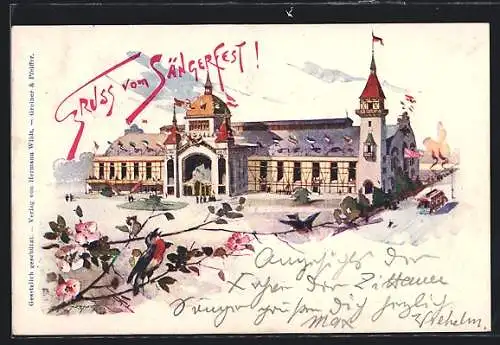 Gruss vom Sängerfest!
Gesetzlich geschützt. – Verlag von Hermann Wildt. – Greiner & Pfeiffer.
Angesichts der
der Zittauer
Sänger grüßen Dich herzlich
Max Wilhelm.